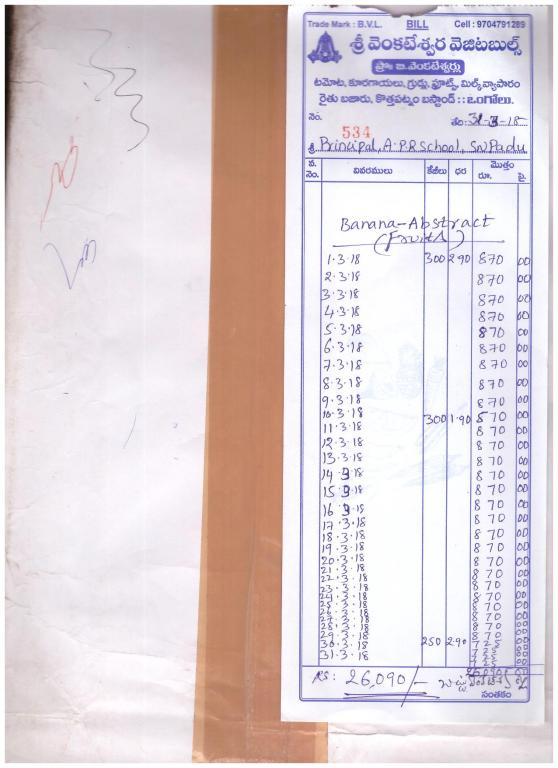 Trade Mark : B.V.L. BILL Cell : 9704791289
శ్రీ వెంకటేశ్వర వెజిటబుల్స్
ప్రొః బి.వెంకటేశ్వర్లు
టమోట, కూరగాయలు, గ్రుడ్లు, ఫ్రూట్స్, మిల్క్ వ్యాపారం
రైతు బజారు, కొత్తపట్నం బస్టాండ్ :: ఒంగోలు.
నెం. 534 తేది: 31-3-18
శ్రీ Principal, A.P.R School, SN Padu
వ. నెం. వివరములు కేజీలు ధర మొత్తం రూ. పై.
Banana-Abstract
(Fruits)
1.3.18 300 2.90 870 00
2.3.18 870 00
3.3.18 870 00
4.3.18 870 00
5.3.18 870 00
6.3.18 870 00
7.3.18 870 00
8.3.18 870 00
9.3.18 870 00
10.3.18 300 1.90 570 00
11.3.18 870 00
12.3.18 870 00
13.3.18 870 00
14.3.18 870 00
15.3.18 870 00
16.3.18 870 00
17.3.18 870 00
18.3.18 870 00
19.3.18 870 00
20.3.18 870 00
21.3.18 870 00
22.3.18 870 00
23.3.18 870 00
24.3.18 870 00
25.3.18 870 00
26.3.18 870 00
27.3.18 870 00
28.3.18 870 00
29.3.18 725 00
30.3.18 250 2.90 725 00
31.3.18 725 00
26,090 00
RS: 26,090/-
సంతకం